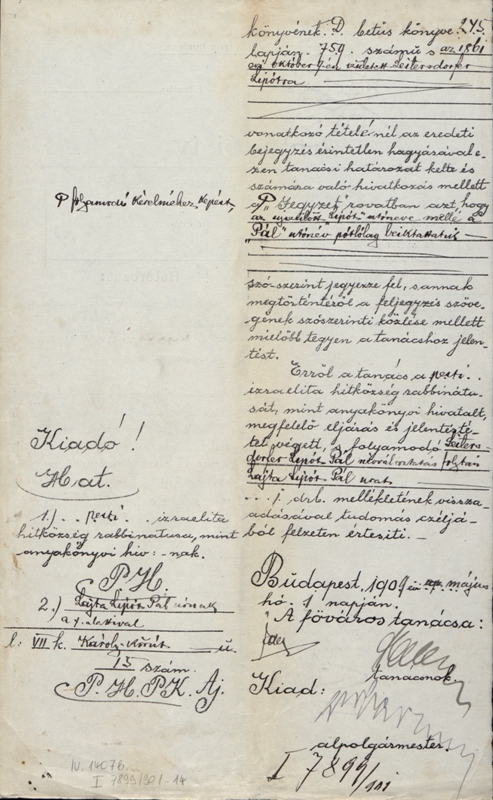 könyvének D. betüs könyve 245
lapján 759. számú s az 1861
évi október 9-én született Leitersdorfer
Lipótra
vonatkozó tételénél az eredeti
bejegyzés érintetlen hagyásával e-
zen tanácsi határozat kelte és
számára való hivatkozás mellett
a "Jegyzet" rovatban azt, hogy
az ujszülött "Lipót" utóneve mellé a
"Pál" utónév pótlólag beiktattatik
szó szerint jegyezze fel, s annak
megtörténtéről a feljegyzés szöve-
gének szószerinti közlése mellett
mielőbb tegyen a tanácshoz jelen-
tést.
Erről a tanács a pesti
izraelita hitközség rabbinátu-
sát, mint anyakönyvi hivatalt,
megfelelő eljárás és jelentésté-
tel végett, s folyamodó Leiters-
dorfer Lipót Pál névváltoztatás folytán
Lajta Lipót Pál urat
./. drb. mellékletének vissza-
adásával tudomás czéljá-
ból felzeten értesiti. —
Budapest, 1909 évi május
hó 1 napján.
A főváros tanácsa:
tanácsnok.
Kiad:
alpolgármester.
I 7899/
P folyamodó kérelméhez képest,
Kiadó!
Hat.
1.) pesti izraelita
hitközség rabbinátusa, mint
anyakönyvi hiv: - nak.
P. H.
2.) Lajta Lipót Pál úrnak
l: VII. k. Károly-körút u.
13 szám.
P. H. P. K. Aj.
IV. 1407 b
I 7899/901-14